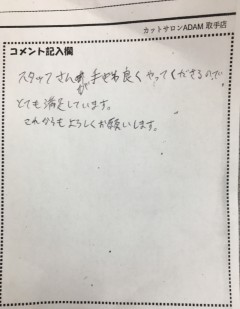 カットサロンADAM 取手店
コメント記入欄
スタッフさんが手ぎわ良くやってくださるので、
とても満足しています。
これからもよろしくお願いします。